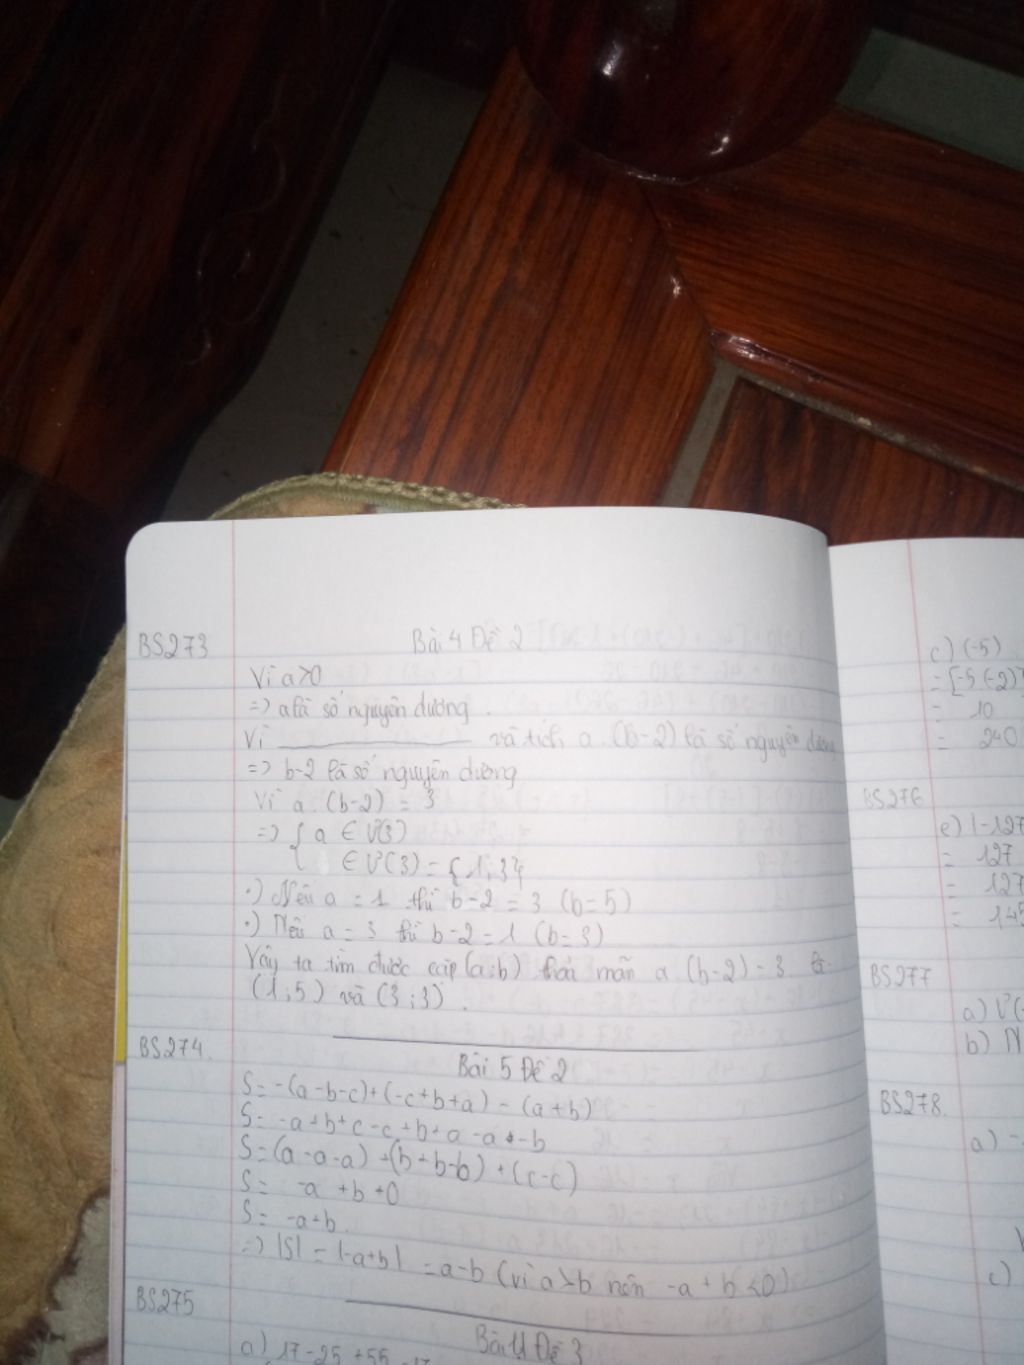 BS273
Bài 4 Đề 2
Vì a>0
=> a là số nguyên dương.
Vì và tích a.(b-2) là số nguyên dương
=> b-2 là số nguyên dương
Vì a.(b-2) = 3
=> { a ∈ Ư(3)
∈ Ư(3) = {1;3}
·) Nếu a = 1 thì b-2 = 3 (b=5)
·) Nếu a = 3 thì b-2 = 1 (b=3)
Vậy ta tìm được cặp (a;b) thoả mãn a (b-2) = 3 là
(1;5) và (3;3).
BS274.
Bài 5 Đề 2
S = -(a-b-c)+(-c+b+a)-(a+b)
S = -a+b+c-c+b+a-a-b
S = (a-a-a)+(b+b-b)+(c-c)
S = -a+b+0
S = -a+b.
=> |S| = |-a+b| = a-b (vì a>b nên -a+b<0)
BS275
Bài 4 Đề 3
a) 17-25+55-17
c) (-5)
= [-5.(-2)]
= 10
= 240
BS276
e) |-127
= 127
= 127
= 145
BS277
a) Ư(-
b)
BS278.
a) -
c)